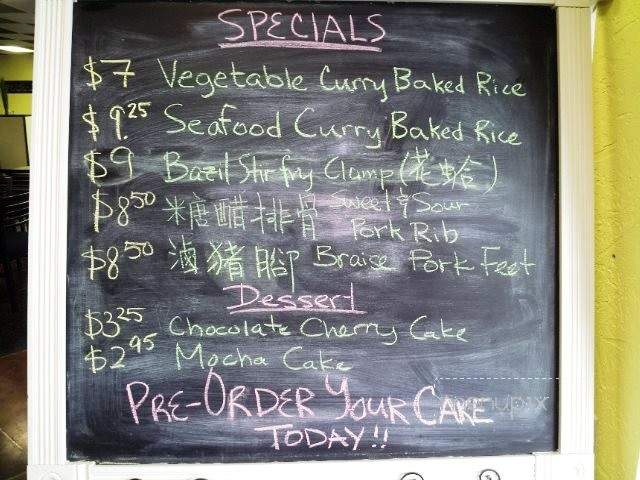 SPECIALS
$7 Vegetable Curry Baked Rice
$9.25 Seafood Curry Baked Rice
$9 Bazil Stir fry Clamp (花蛤)
$8.50 糖醋排骨 Sweet & Sour
Pork Rib
$8.50 滷豬腳 Braise Pork Feet
Dessert
$3.25 Chocolate Cherry Cake
$2.95 Mocha Cake
PRE-ORDER YOUR CAKE
TODAY!!